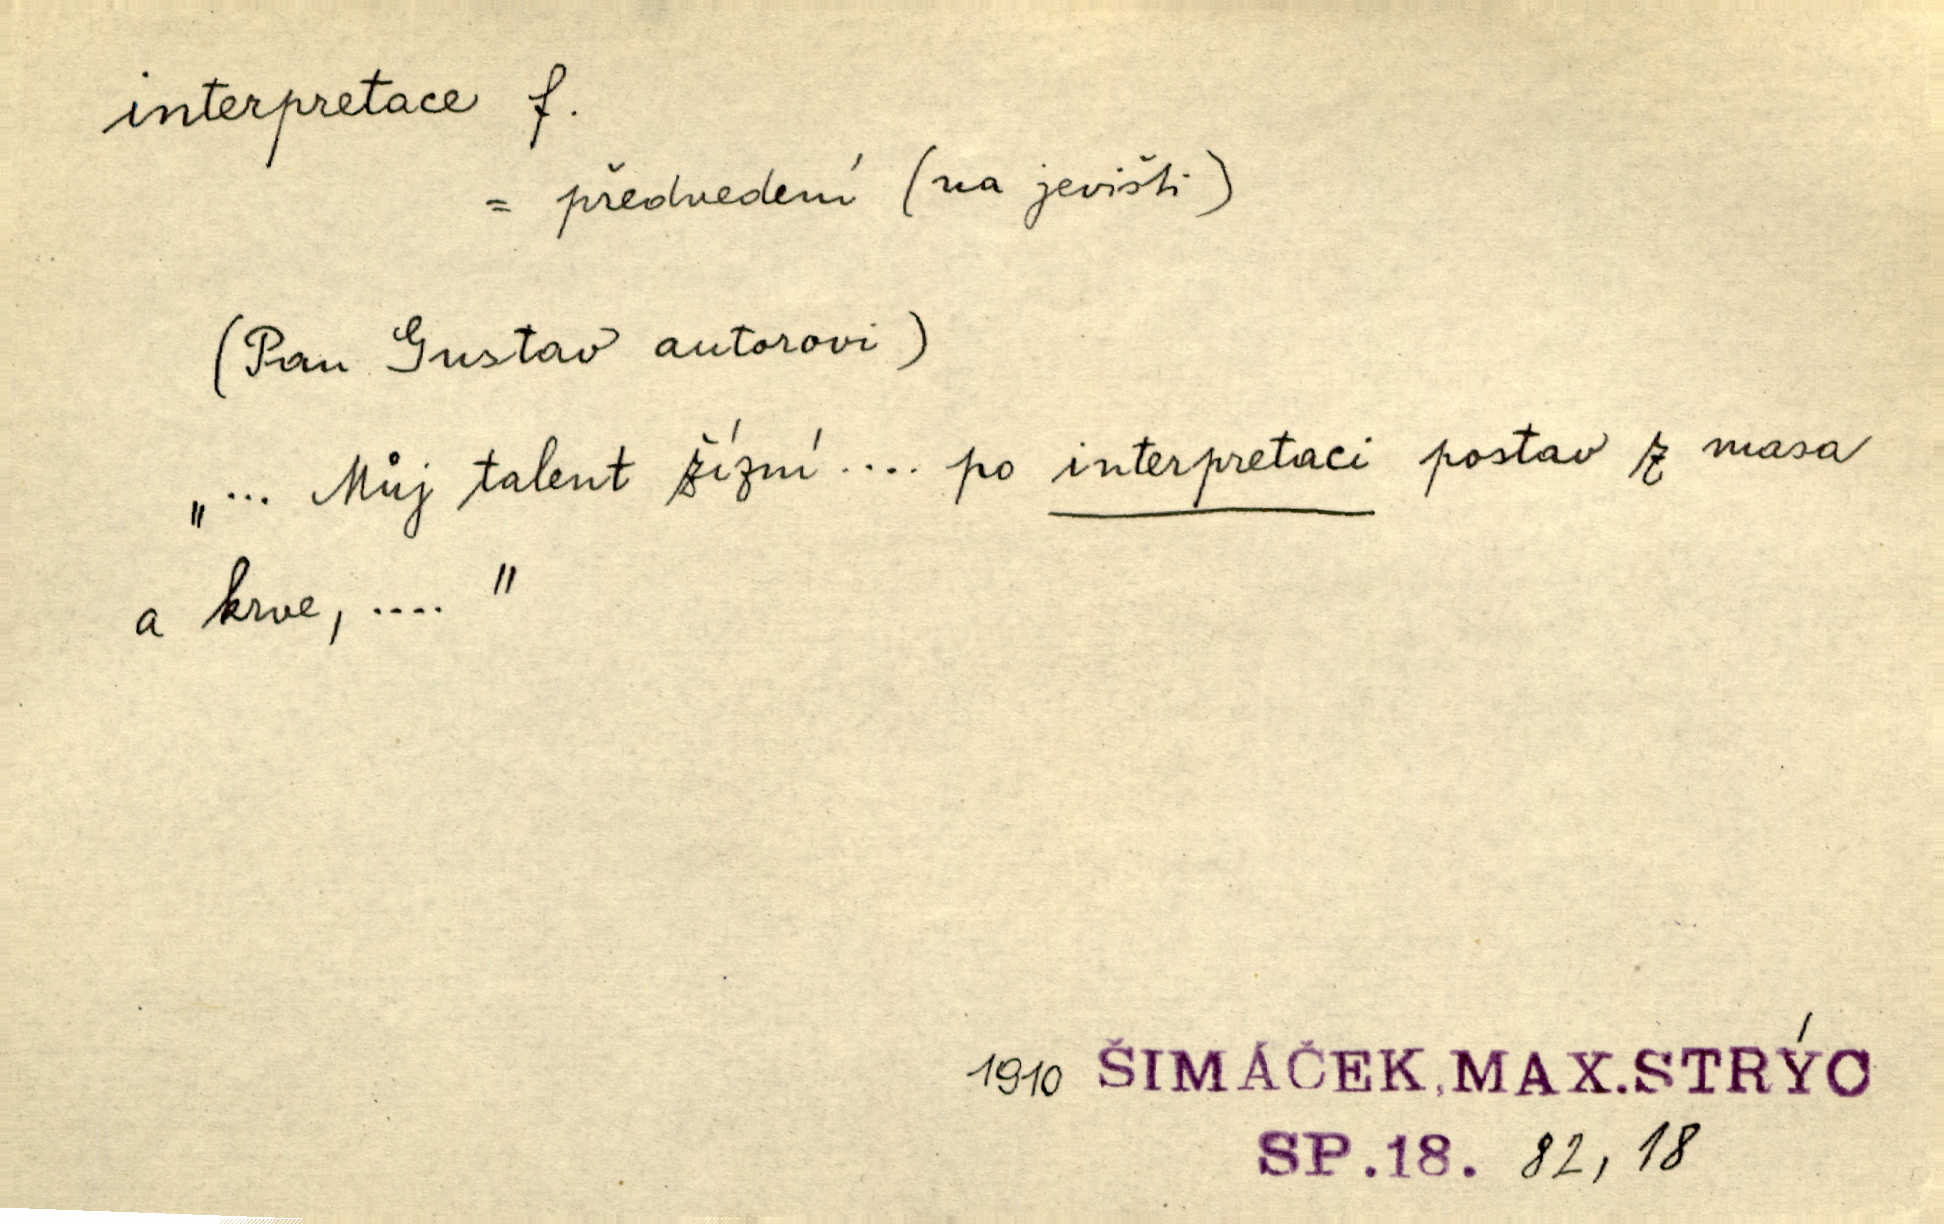 interpretace f.
= předvedení (na jevišti)
(Pan Gustav autorovi)
„... Můj talent žízní .... po interpretaci postav z masa
a krve, .... "
1910 ŠIMÁČEK, MAX. STRÝC
SP. 18. 82, 18